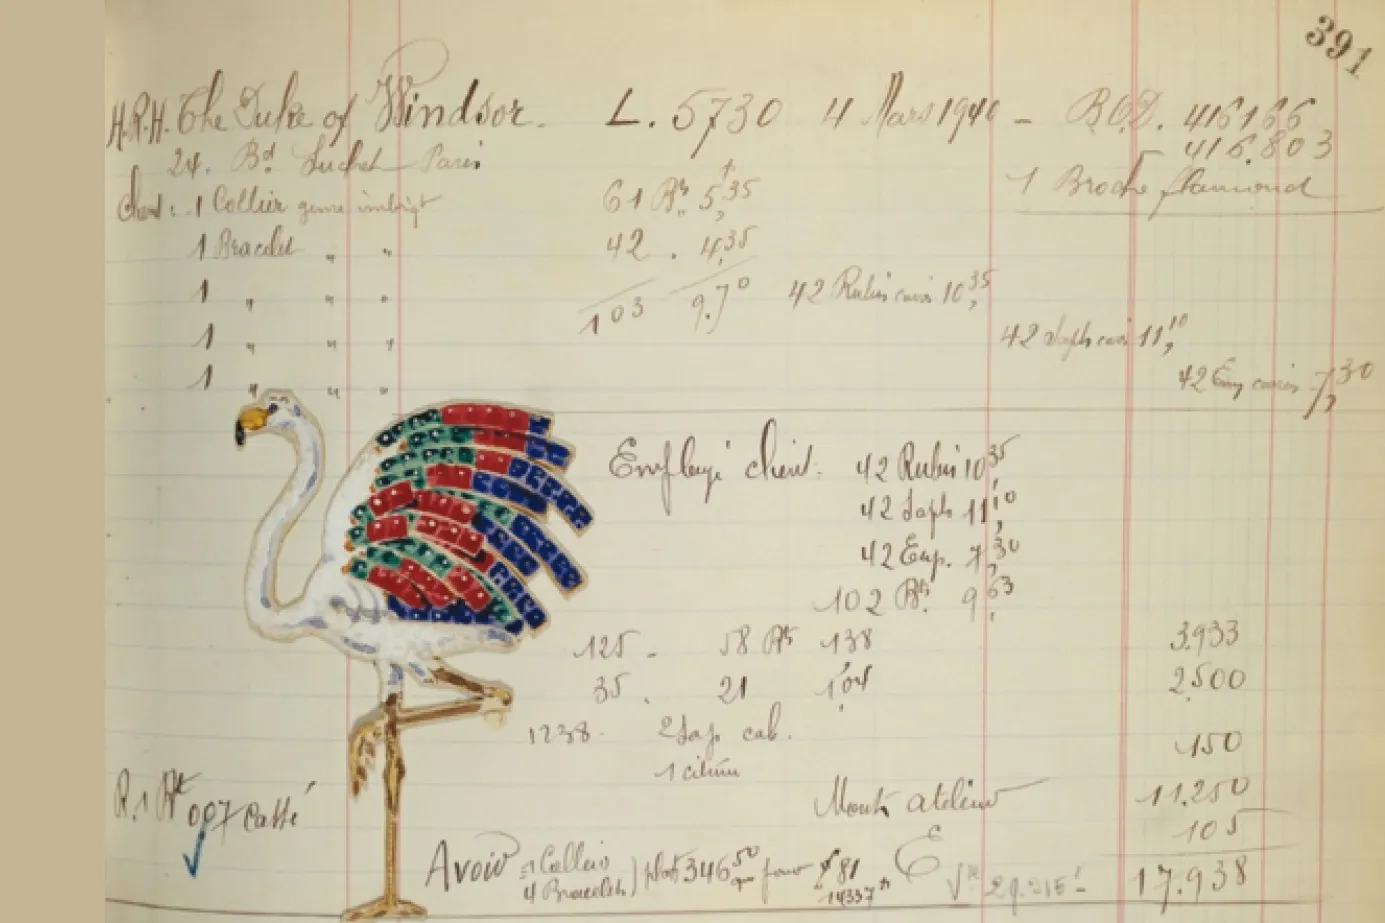 391
H.R.H. The Duke of Windsor. L. 5730 4 Mars 1940 – B.O.D. 416166
24. Bd Suchet Paris 416.803
1 Broche flamand
Client: 1 Collier genre imbriqt 61 Bts 5,35
1 Bracelet " " 42 . 4,35
1 " " 103 9.70 42 Rubis carrés 10,35
1 " " 42 Saph carrés 11,10
1 " " 42 Em carrés 7,30
Employé client. 42 Rubis 10,35
42 Saph 11,10
42 Em. 7,30
102 Bts. 9,63
125 – 58 Bts 138 3.933
35 . 21 1,04 2.500
1238. 2 Sap. cab. 150
1 citrin
Monts atelier 11.250
R. 1 Bt 007 cassé 105
Avoir = 1 Collier
4 Bracelets ) plat 346,50 pour 81
14337
17.938